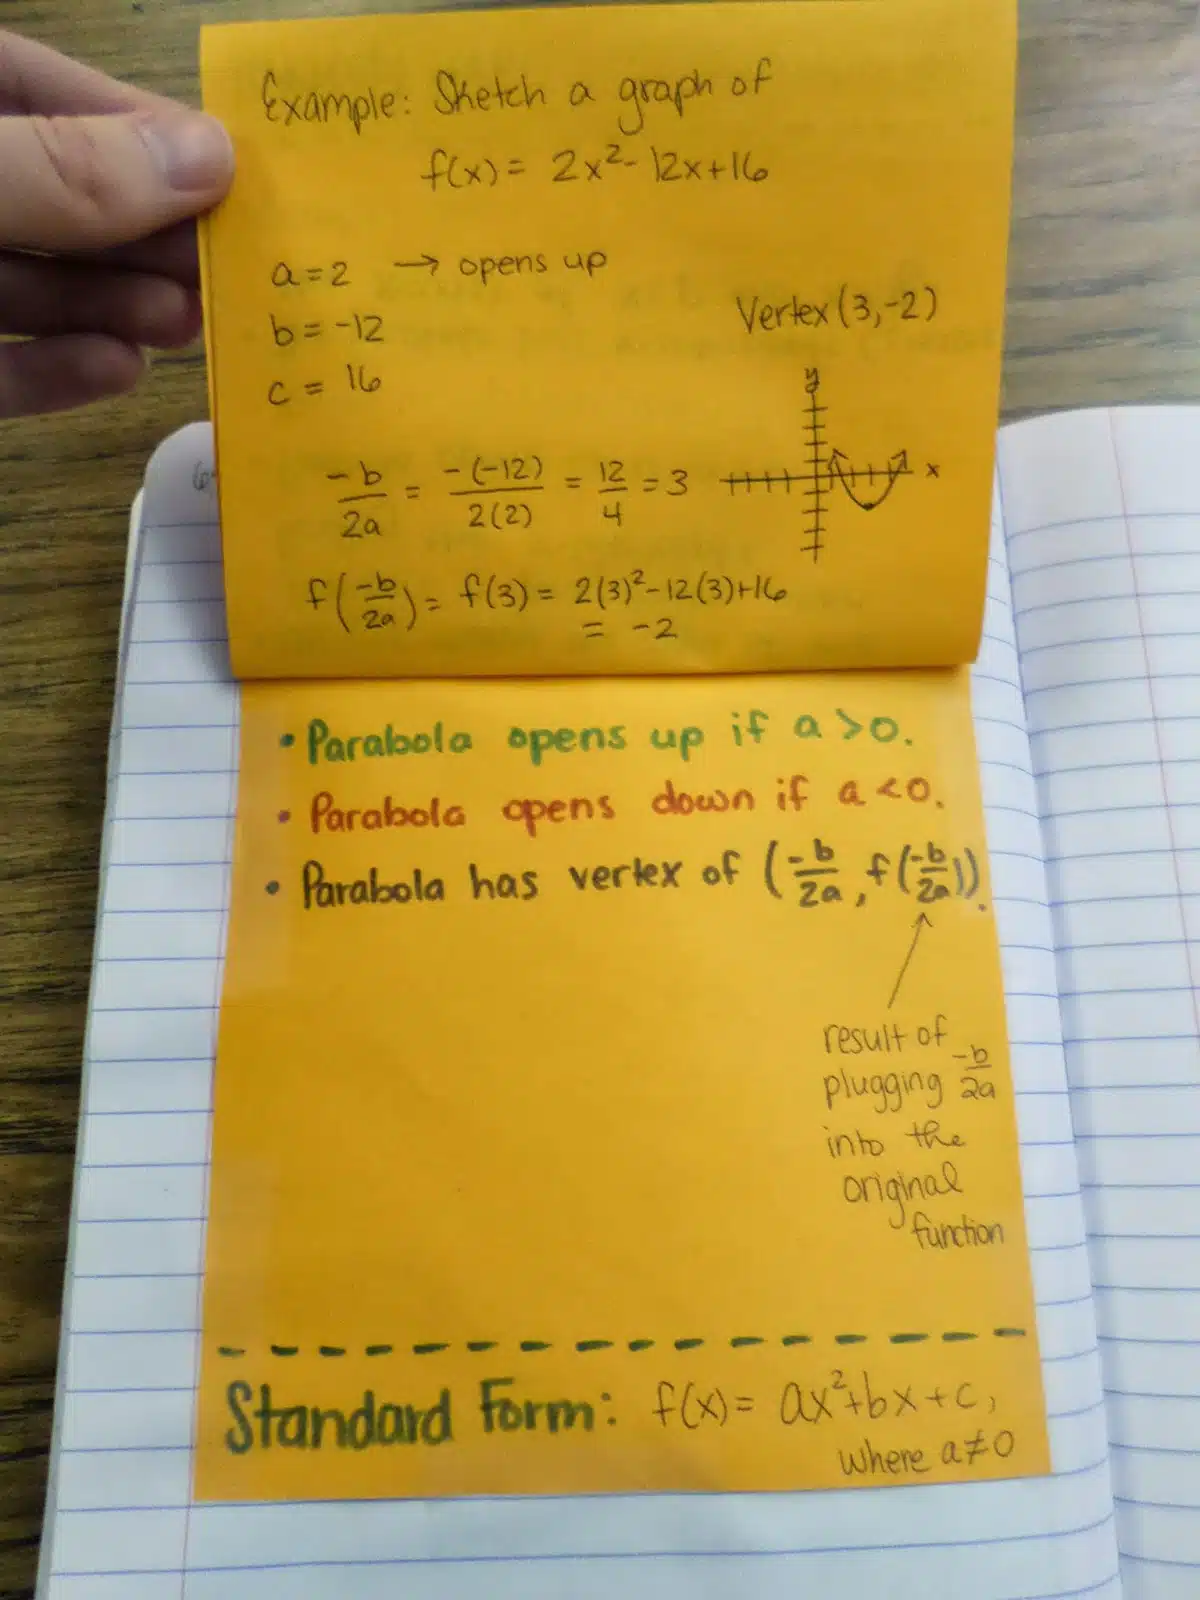 Example: Sketch a graph of
f(x) = 2x² - 12x + 16
a = 2 → opens up
b = -12
c = 16
Vertex (3, -2)
y
x
-b/2a = -(-12)/2(2) = 12/4 = 3
f(-b/2a) = f(3) = 2(3)² - 12(3) + 16
= -2
• Parabola opens up if a > 0.
• Parabola opens down if a < 0.
• Parabola has vertex of (-b/2a, f(-b/2a)).
result of
plugging -b/2a
into the
original
function
Standard Form: f(x) = ax² + bx + c,
where a ≠ 0